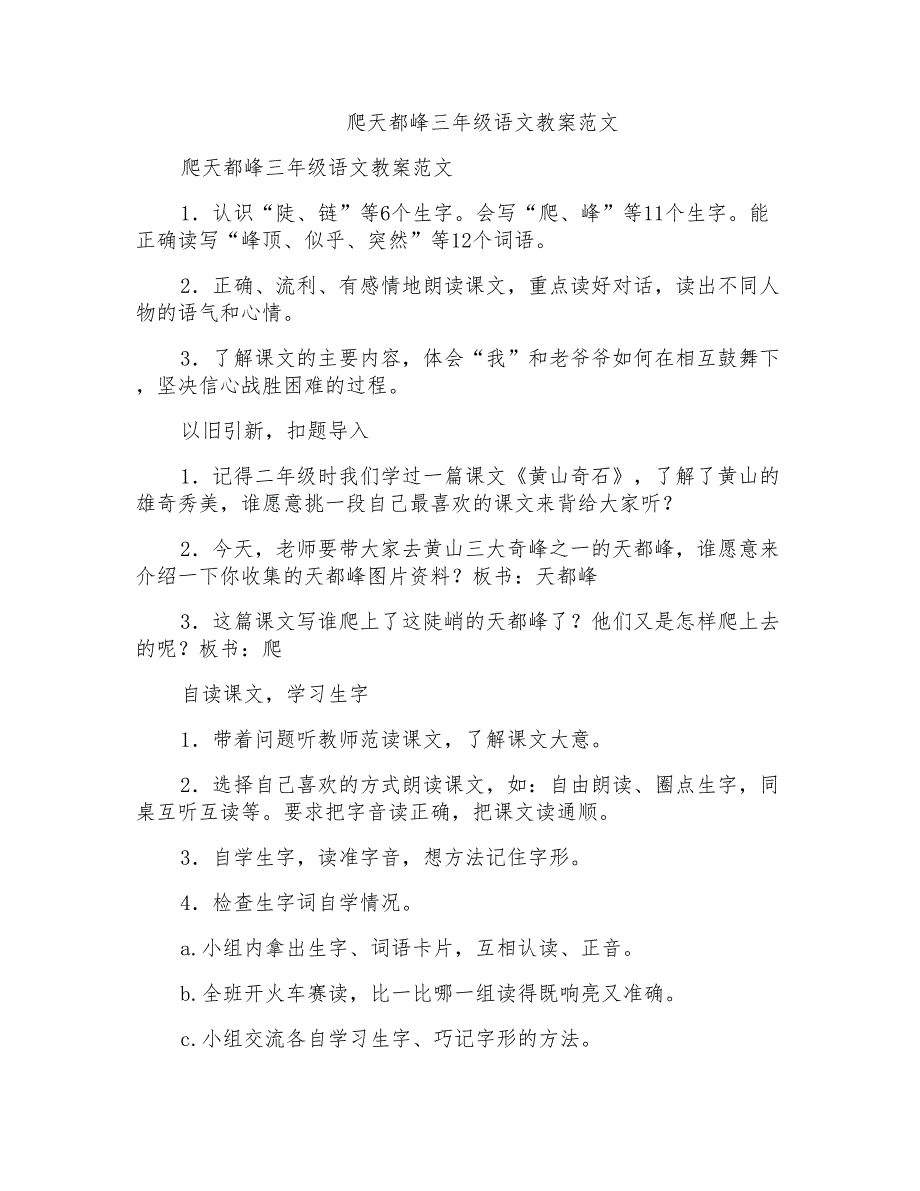 爬天都峰三年级语文教案范文
爬天都峰三年级语文教案范文
1．认识“陡、链”等6个生字。会写“爬、峰”等11个生字。能
正确读写“峰顶、似乎、突然”等12个词语。
2．正确、流利、有感情地朗读课文，重点读好对话，读出不同人
物的语气和心情。
3．了解课文的主要内容，体会“我”和老爷爷如何在相互鼓舞下
，坚决信心战胜困难的过程。
以旧引新，扣题导入
1．记得二年级时我们学过一篇课文《黄山奇石》，了解了黄山的
雄奇秀美，谁愿意挑一段自己最喜欢的课文来背给大家听？
2．今天，老师要带大家去黄山三大奇峰之一的天都峰，谁愿意来
介绍一下你收集的天都峰图片资料？板书：天都峰
3．这篇课文写谁爬上了这陡峭的天都峰了？他们又是怎样爬上去
的呢？板书：爬
自读课文，学习生字
1．带着问题听教师范读课文，了解课文大意。
2．选择自己喜欢的方式朗读课文，如：自由朗读、圈点生字，同
桌互听互读等。要求把字音读正确，把课文读通顺。
3．自学生字，读准字音，想方法记住字形。
4．检查生字词自学情况。
a.小组内拿出生字、词语卡片，互相认读、正音。
b.全班开火车赛读，比一比哪一组读得既响亮又准确。
c.小组交流各自学习生字、巧记字形的方法。